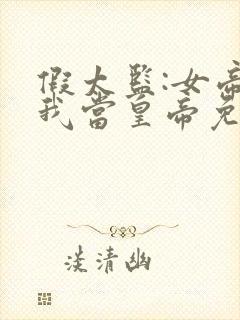 假太监:女帝
我当皇帝免
淡清幽